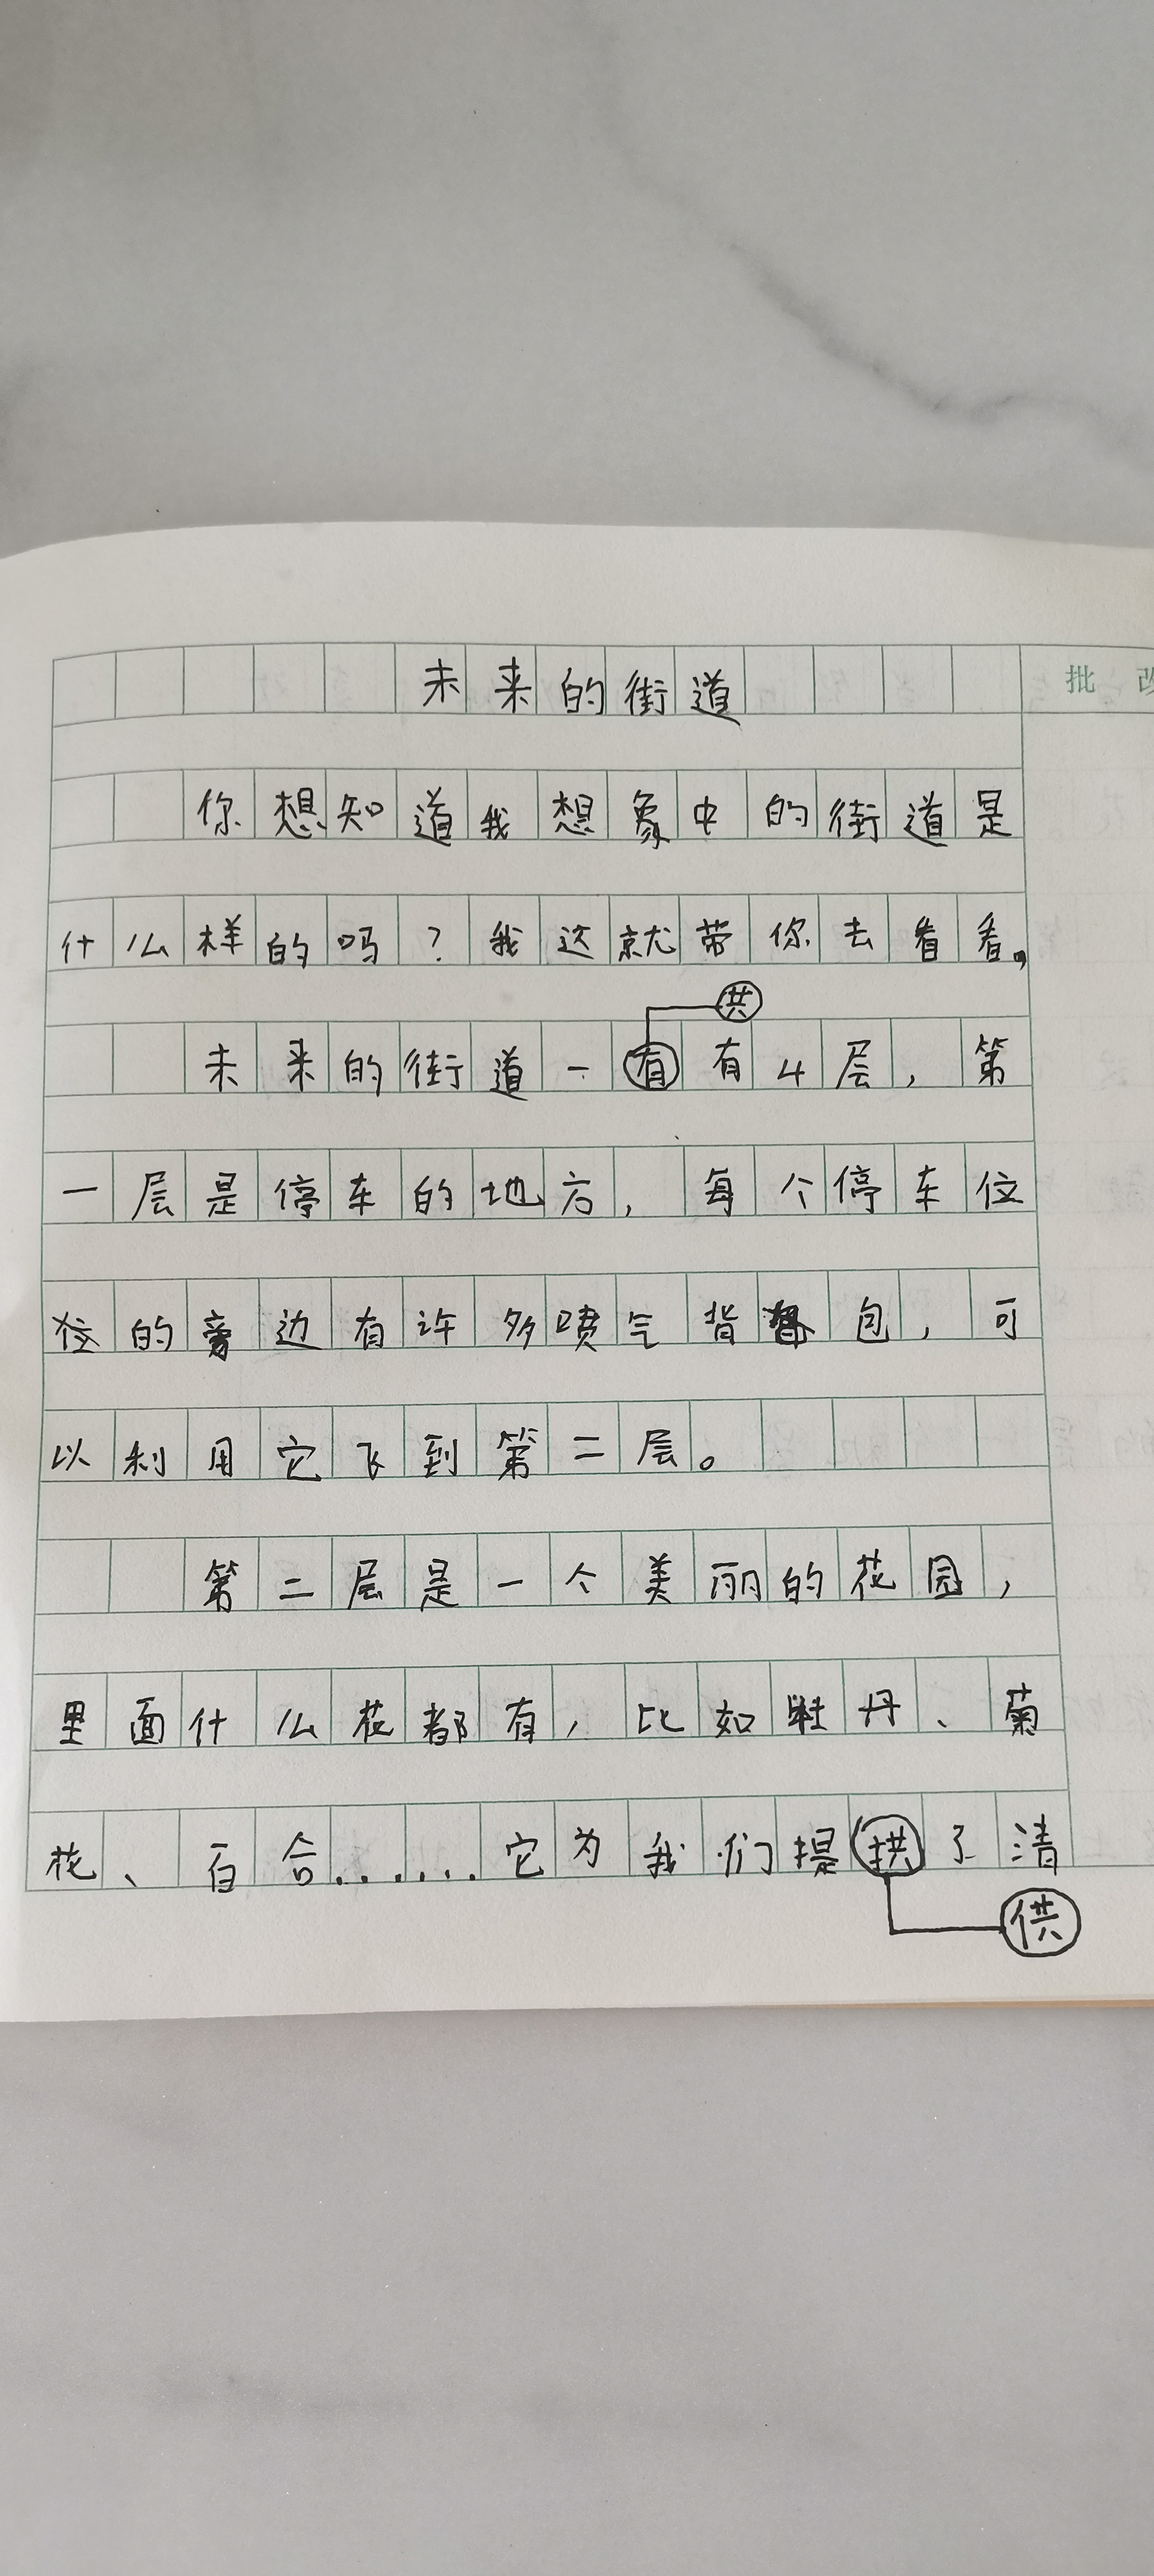 批 改
未来的街道
你想知道我想象中的街道是
什么样的吗？我这就带你去看看。
共
未来的街道一有有4层，第
一层是停车的地方，每个停车位
位的旁边有许多喷气背包，可
以利用它飞到第二层。
第二层是一个美丽的花园，
里面什么花都有，比如牡丹、菊
花、百合……它为我们提拱了清
供